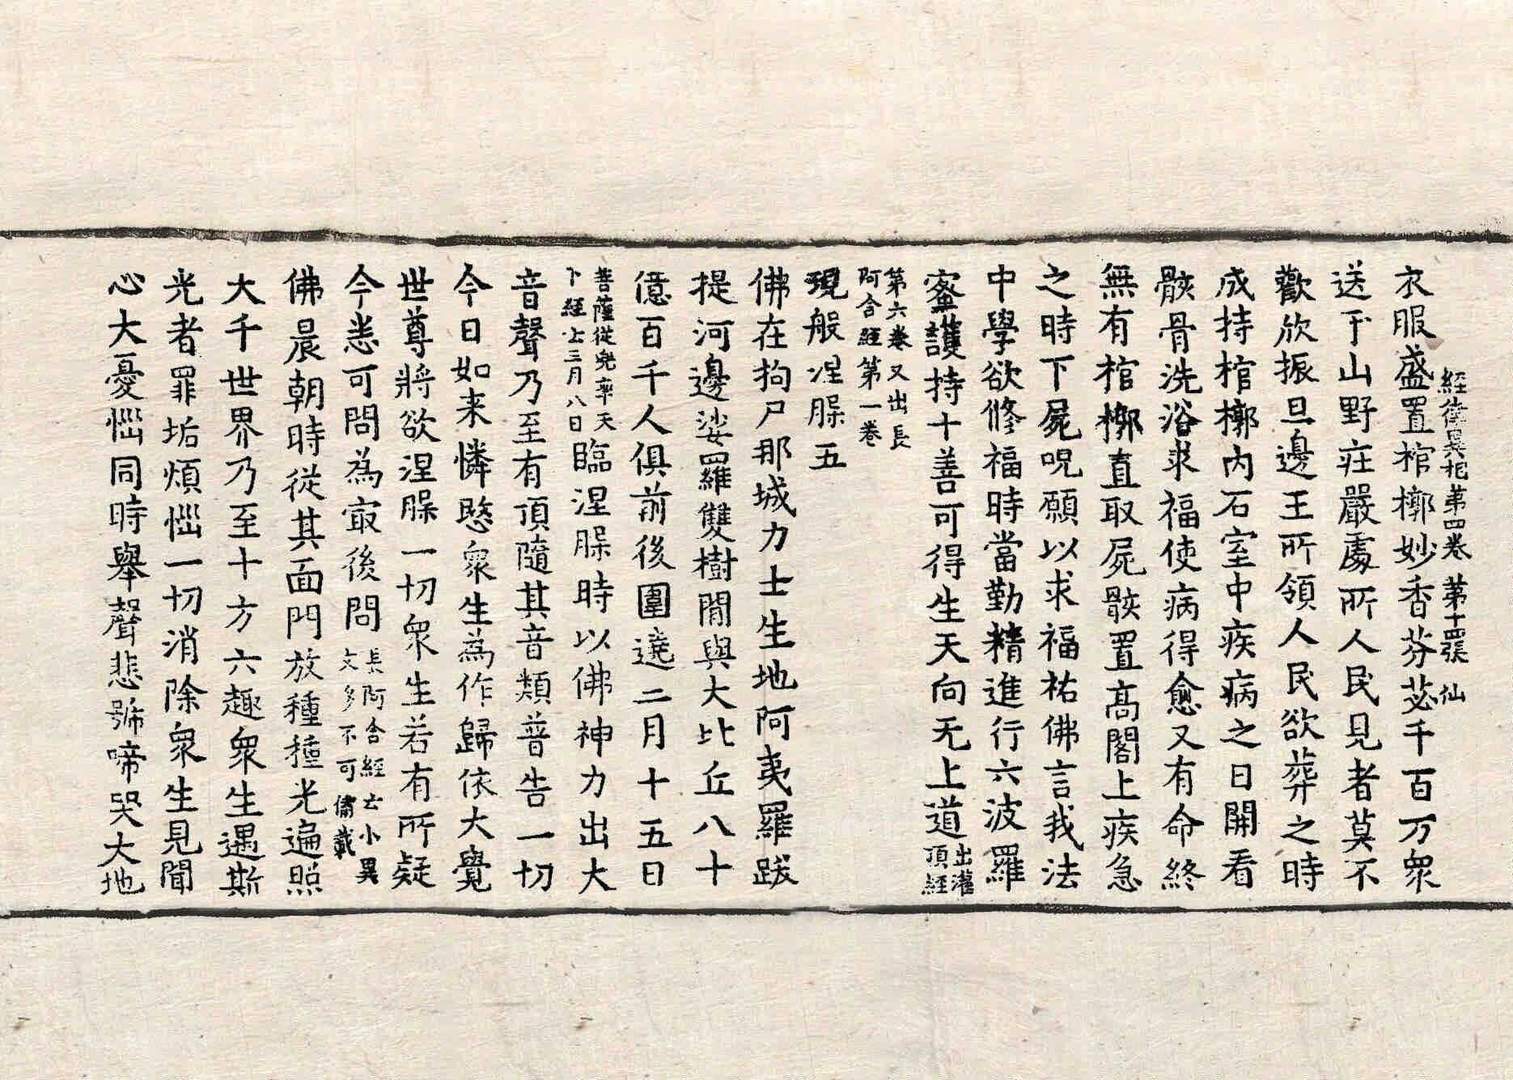 經律異相第四卷 第十四張 仙
衣服盛置棺槨妙香芬苾千百万衆
送于山野莊嚴處所人民見者莫不
歡欣振旦邊王所領人民欲葬之時
成持棺槨內石室中疾病之日開看
骸骨洗浴求福使病得愈又有命終
無有棺槨直取屍骸置高閣上疾急
之時下屍呪願以求福祐佛言我法
中學欲修福時當勤精進行六波羅
蜜護持十善可得生天向无上道出灌頂經
第六卷又出長阿含經第一卷
現般涅槃五
佛在拘尸那城力士生地阿夷羅跋
提河邊娑羅雙樹閒與大比丘八十
億百千人俱前後圍遶二月十五日
菩薩從兜率天下經云三月八日臨涅槃時以佛神力出大
音聲乃至有頂隨其音類普告一切
今日如来憐愍衆生為作歸依大覺
世尊將欲涅槃一切衆生若有所疑
今悉可問為冣後問長阿含經云小異文多不可備載
佛晨朝時從其面門放種種光遍照
大千世界乃至十方六趣衆生遇斯
光者罪垢煩惱一切消除衆生見聞
心大憂惱同時舉聲悲號啼哭大地